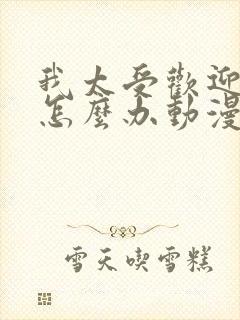 我太受歡迎
怎麼办動漫
雪天喫雪糕